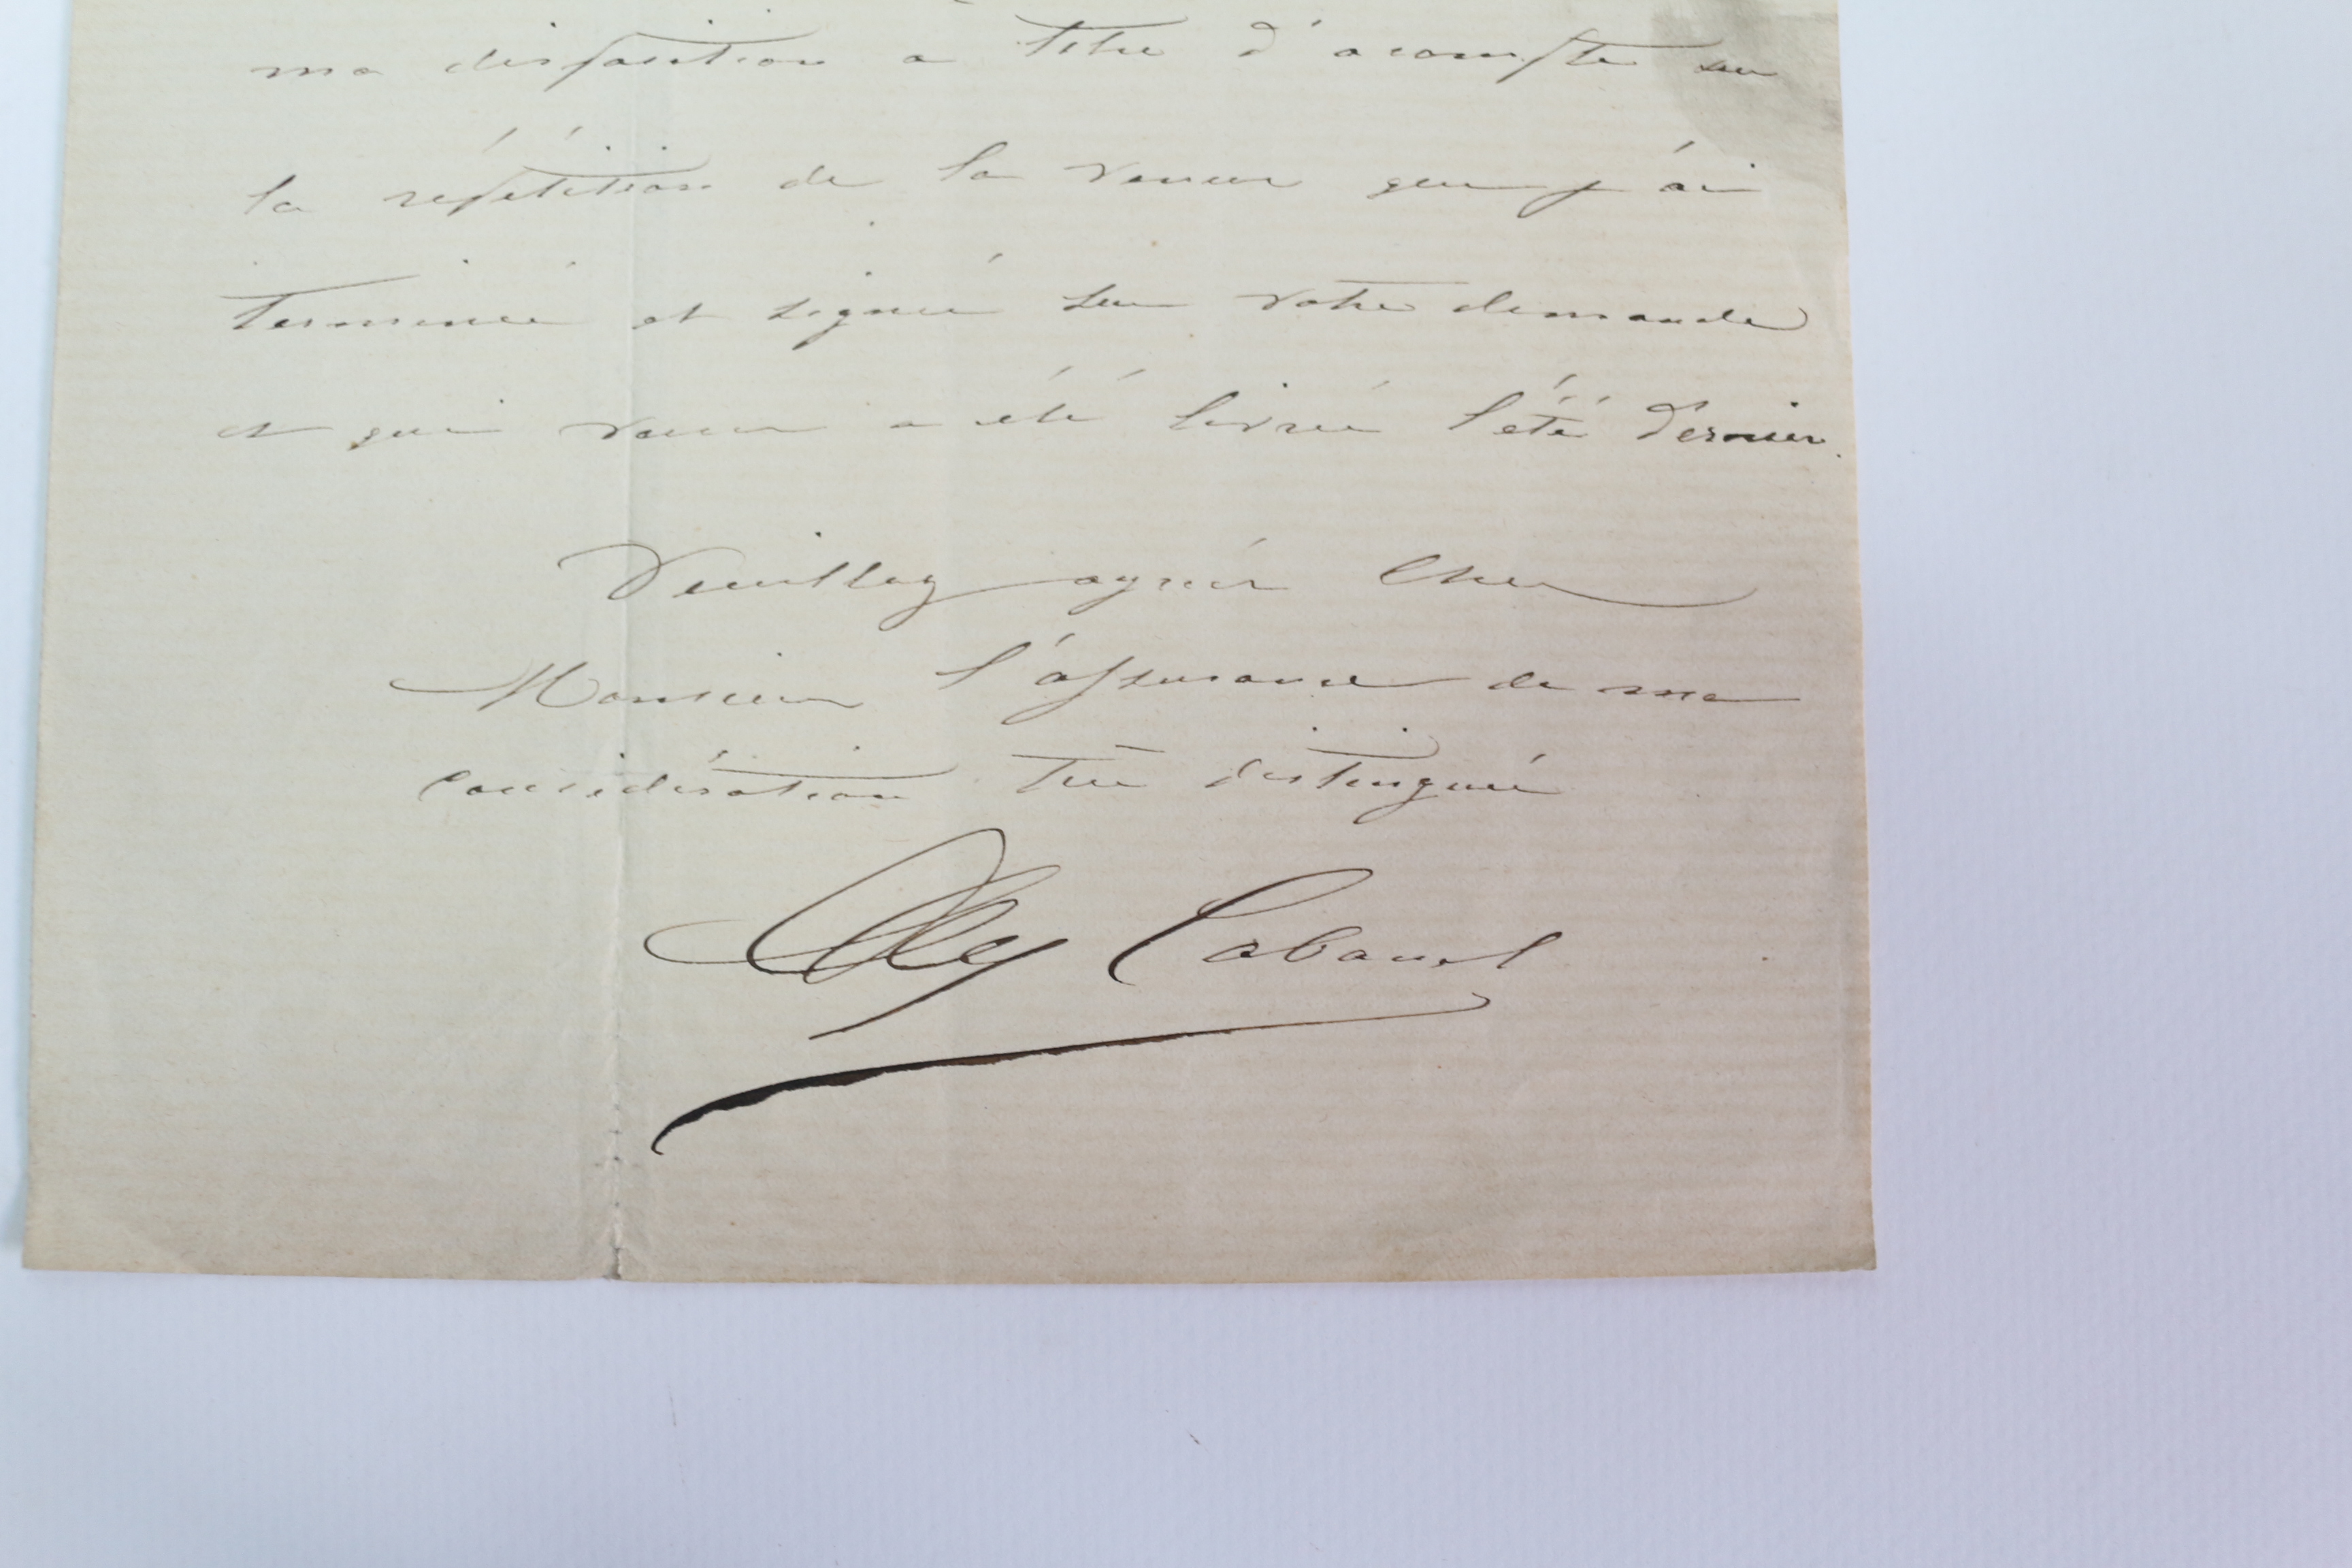 ma disposition à titre d'acompte sur
la répétition de la Venus que j'ai
terminée et signée sur votre demande
et qui vous a été livrée l'été dernier.
Veuillez agréer Cher
Monsieur l'assurance de ma
considération très distinguée
Alex Cabanel